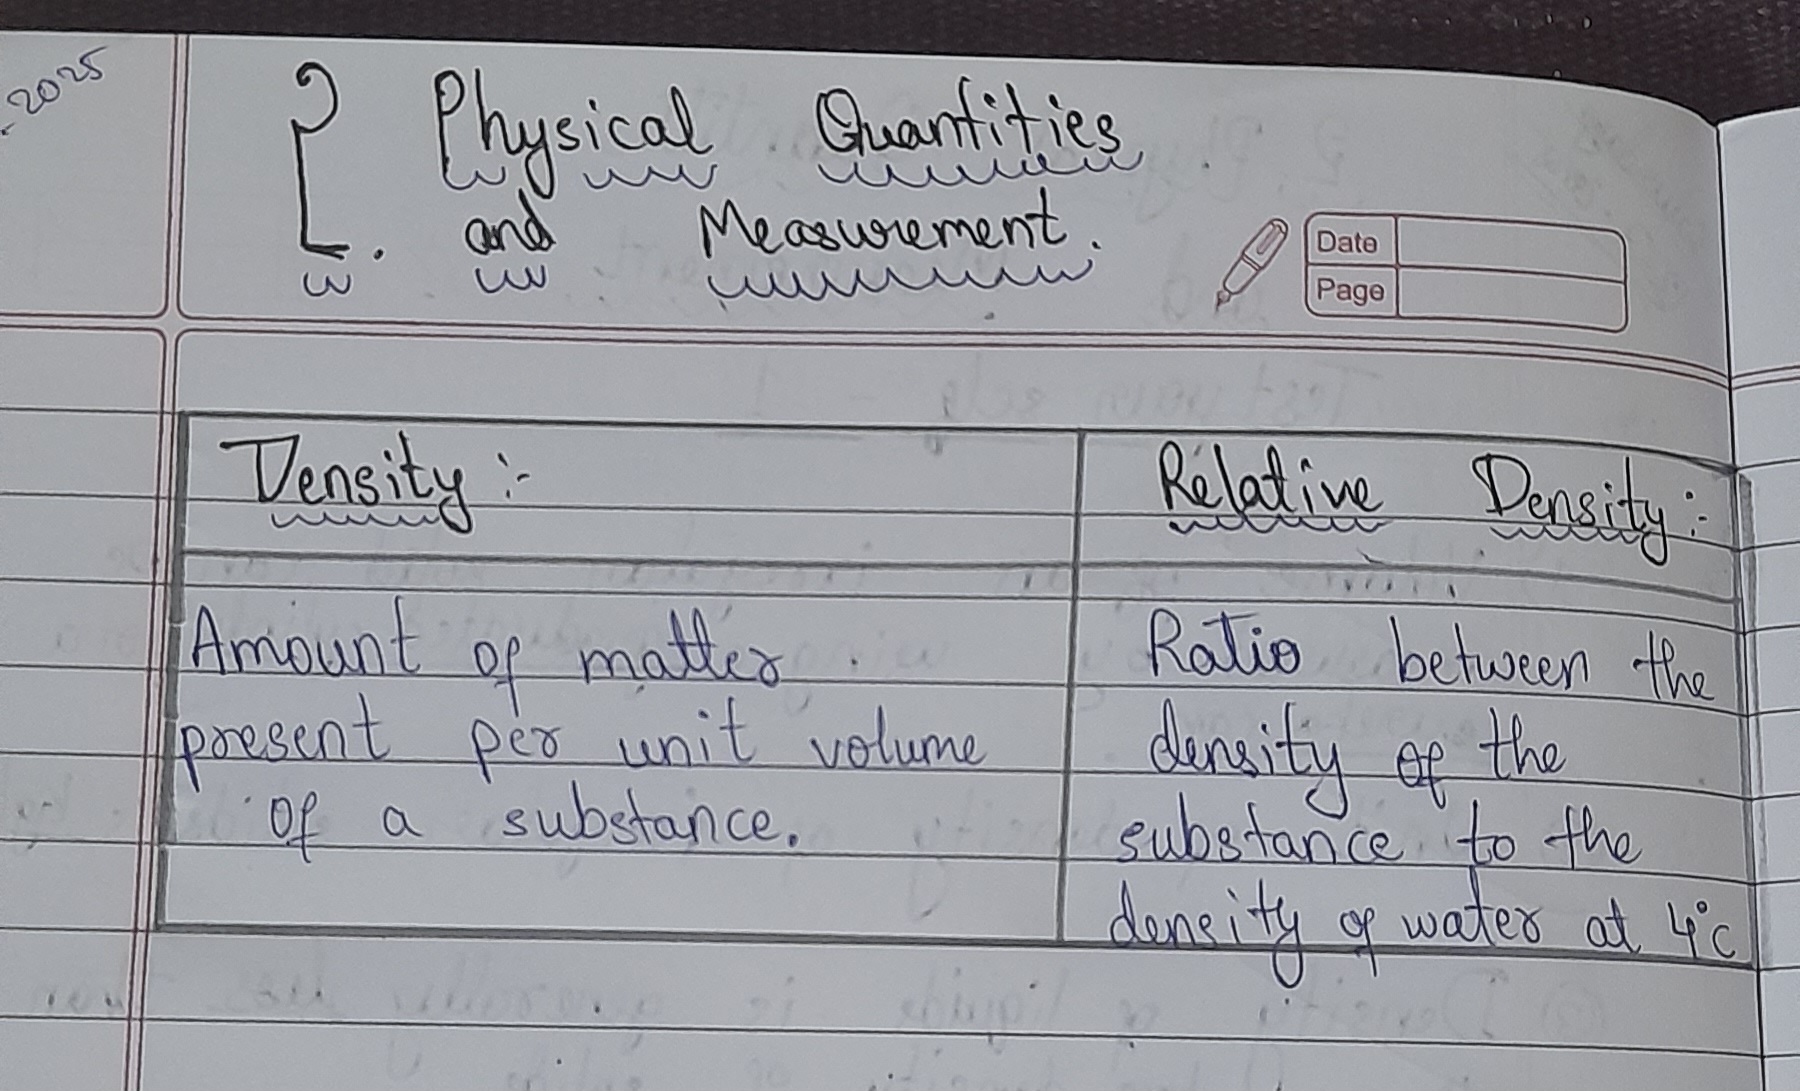 -2025
2. Physical Quantities
and Measurement.
Date
Page
Density :-
Relative Density :-
Amount of matter
present per unit volume
of a substance.
Ratio between the
density of the
substance to the
density of water at 4°C